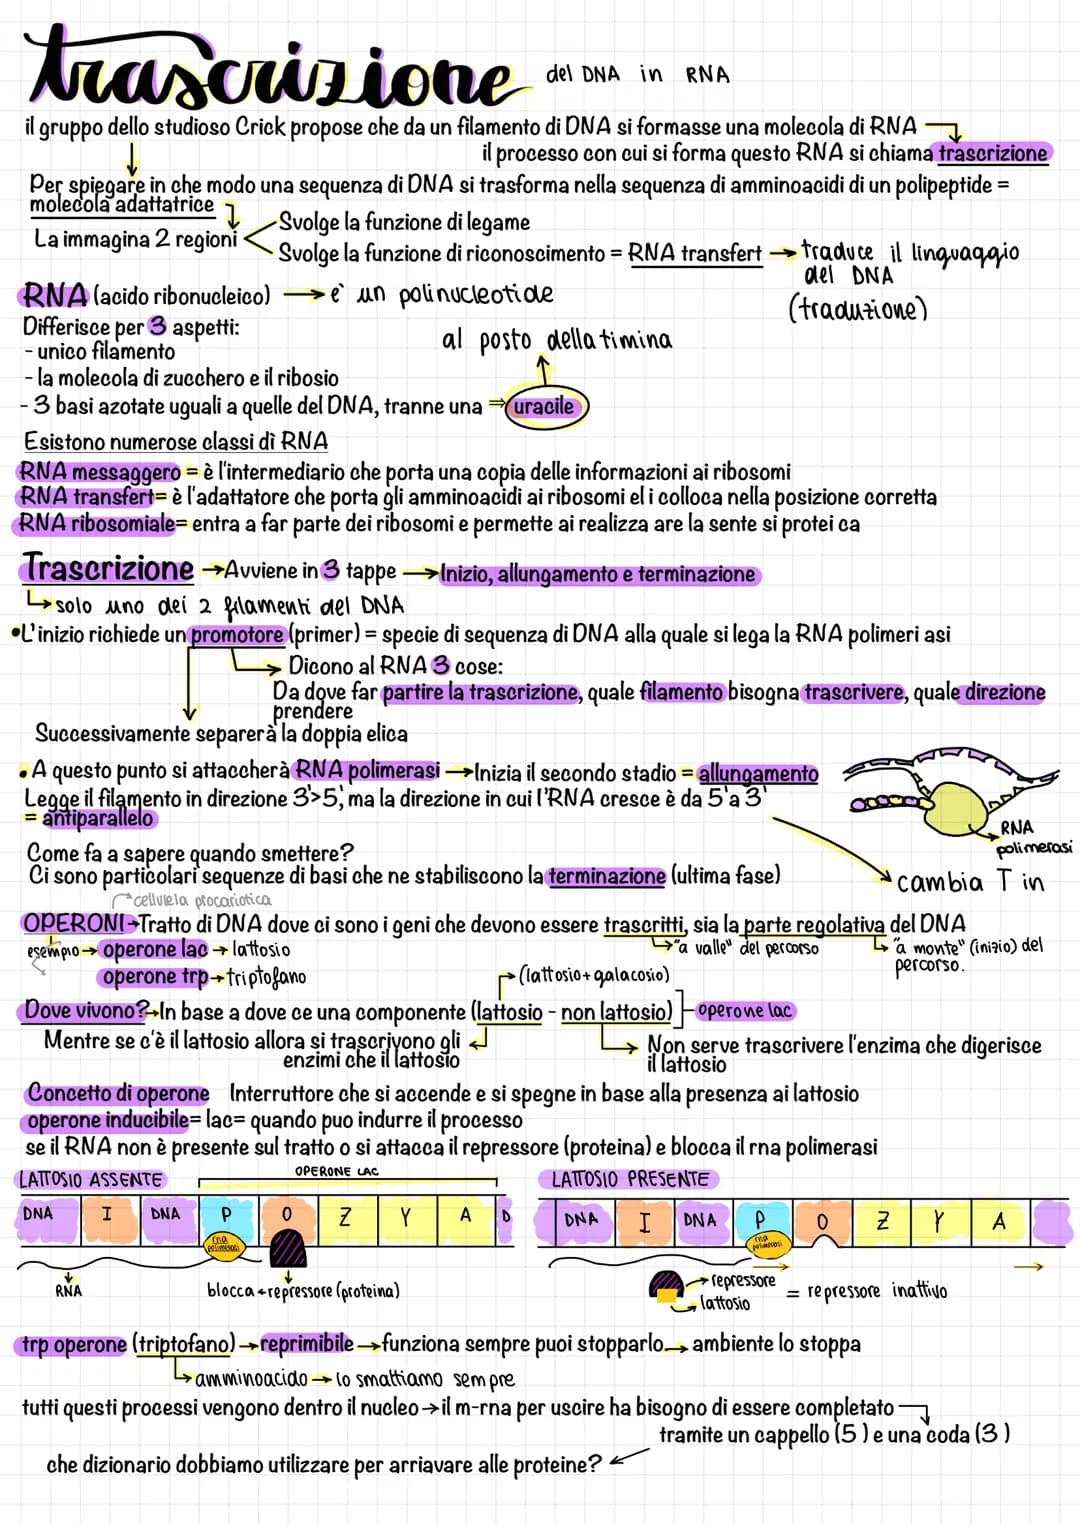 trascrizione del DNA in RNA
il gruppo dello studioso Crick propose che da un filamento di DNA si formasse una molecola di RNA
il processo con cui si forma questo RNA si chiama trascrizione
Per spiegare in che modo una sequenza di DNA si trasforma nella sequenza di amminoacidi di un polipeptide =
molecola adattatrice
La immagina 2 regioni
Svolge la funzione di legame
Svolge la funzione di riconoscimento = RNA transfert → traduce il linguaggio
del DNA
(traduzione)
RNA (acido ribonucleico) → e' un polinucleotide
Differisce per 3 aspetti:
- unico filamento
- la molecola di zucchero e il ribosio
- 3 basi azotate uguali a quelle del DNA, tranne una ⇒ uracile
al posto della timina
Esistono numerose classi di RNA
RNA messaggero = è l'intermediario che porta una copia delle informazioni ai ribosomi
RNA transfert= è l'adattatore che porta gli amminoacidi ai ribosomi el i colloca nella posizione corretta
RNA ribosomiale= entra a far parte dei ribosomi e permette ai realizza are la sente si protei ca
Trascrizione → Avviene in 3 tappe → Inizio, allungamento e terminazione
solo uno dei 2 filamenti del DNA
•L'inizio richiede un promotore (primer) = specie di sequenza di DNA alla quale si lega la RNA polimeri asi
Dicono al RNA 3 cose:
Da dove far partire la trascrizione, quale filamento bisogna trascrivere, quale direzione
prendere
Successivamente separerà la doppia elica
• A questo punto si attaccherà RNA polimerasi → Inizia il secondo stadio = allungamento
Legge il filamento in direzione 3'>5', ma la direzione in cui l'RNA cresce è da 5' a 3'
= antiparallelo
RNA
polimerasi
Come fa a sapere quando smettere?
Ci sono particolari sequenze di basi che ne stabiliscono la terminazione (ultima fase)
cambia T in
cellulela procariotica
OPERONI→Tratto di DNA dove ci sono i geni che devono essere trascritti, sia la parte regolativa del DNA
"a valle" del percorso
"a monte" (inizio) del
percorso.
esempio → operone lac → lattosio
operone trp → triptofano
(lattosio+galacosio)
Dove vivono?→In base a dove ce una componente (lattosio - non lattosio) operone lac
Mentre se c'è il lattosio allora si trascrivono gli
enzimi che il lattosio
Non serve trascrivere l'enzima che digerisce
il lattosio
Concetto di operone Interruttore che si accende e si spegne in base alla presenza ai lattosio
operone inducibile= lac= quando puo indurre il processo
se il RNA non è presente sul tratto o si attacca il repressore (proteina) e blocca il rna polimerasi
LATTOSIO ASSENTE
OPERONE LAC
DNA I DNA P O Z Y A D
rna
polimerasi
RNA
blocca ← repressore (proteina)
LATTOSIO PRESENTE
DNA I DNA P O Z Y A
rna
polimerasi
repressore
lattosio
= repressore inattivo
trp operone (triptofano) → reprimibile → funziona sempre puoi stopparlo → ambiente lo stoppa
amminoacido → lo smaltiamo sempre
tutti questi processi vengono dentro il nucleo → il m-rna per uscire ha bisogno di essere completato
tramite un cappello (5 ) e una coda (3 )
che dizionario dobbiamo utilizzare per arriavare alle proteine?